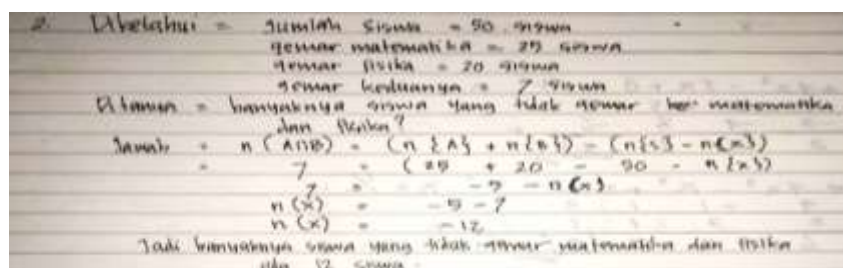 2. Diketahui = Jumlah siswa = 50 siswa
gemar matematika = 25 siswa
gemar fisika = 20 siswa
gemar keduanya = 7 siswa
Ditanya = banyaknya siswa yang tidak gemar ber matematika
dan fisika?
Jawab = n (A∩B) = (n {A} + n{B}) - (n{s} - n{x})
= 7 = (25 + 20 - 50 - n{x})
7 = -5 - n{x}
n(x) = -5 - 7
n(x) = -12
Jadi banyaknya siswa yang tidak gemar matematika dan fisika
ada 12 siswa.